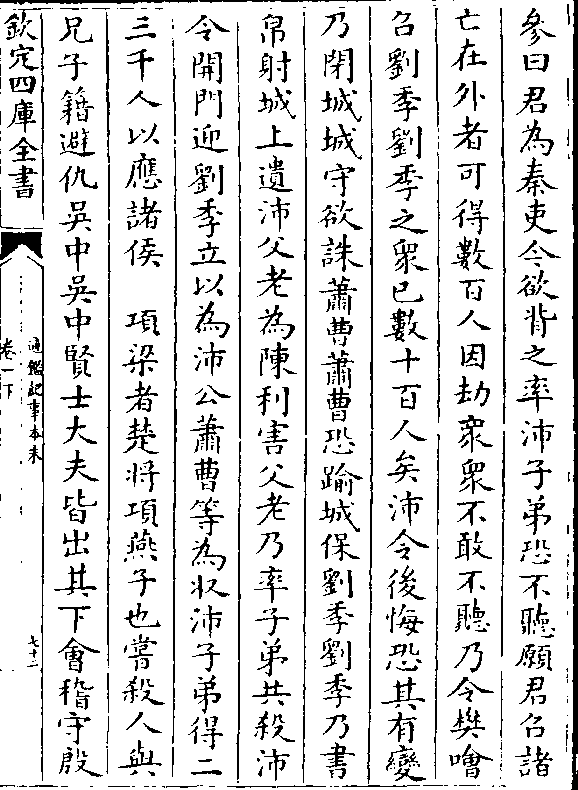 參曰君為秦吏今欲背之率沛子弟恐不聽願君召諸
亡在外者可得數百人因劫衆衆不敢不聽乃令樊噲
召劉季劉季之衆已數十百人矣沛令後悔恐其有變
乃閉城城守欲誅蕭曹蕭曹恐踰城保劉季劉季乃書
帛射城上遺沛父老為陳利害父老乃率子弟共殺沛
令開門迎劉季立以為沛公蕭曹等為收沛子弟得二
三千人以應諸侯　項梁者楚將項燕子也嘗殺人與
兄子籍避仇吳中吳中賢士大夫皆出其下會稽守殷
欽定四庫全書
通鑑記事本末
卷一下
七十二